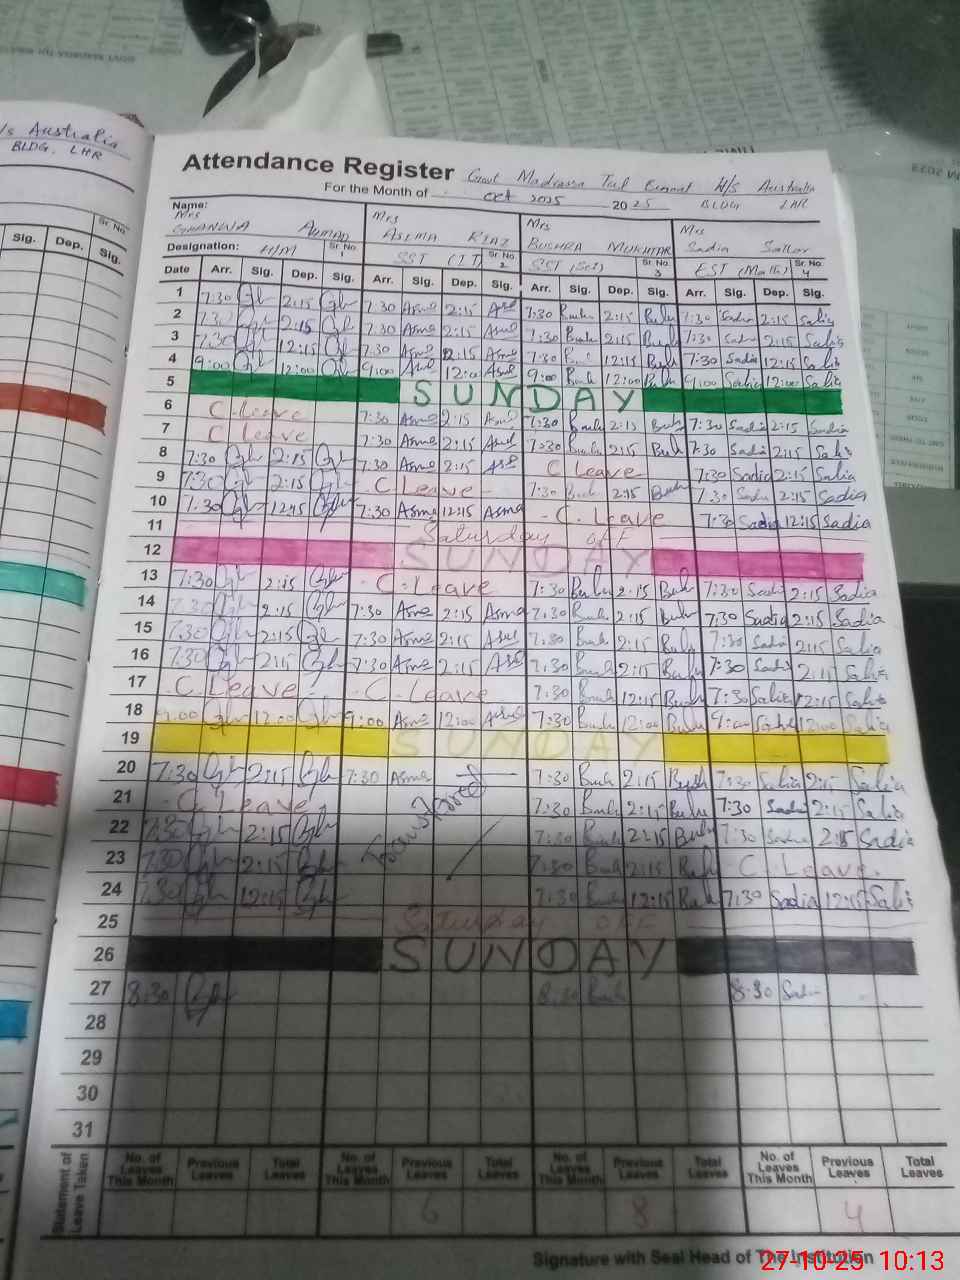 /s Australia
BLDG, LHR
Attendance Register Govt Madrassa Tul Banat H/S Australia
For the Month of Oct 2025 2025 BLDG LHR
Name: Mrs Mrs Mrs Mrs
GHANWA AHMAD ASEMA RIAZ BUSHRA MUKHTAR Sadia Sattar
Designation: H/M Sr. No. 1 SST (IT) Sr. No. 2 SST (Sci) Sr. No. 3 EST (Math) Sr. No. 4
Sr. No.
Sig. Dep. Sig.
Date Arr. Sig. Dep. Sig. Arr. Sig. Dep. Sig. Arr. Sig. Dep. Sig. Arr. Sig. Dep. Sig.
1 7:30 2:15 7:30 Asma 2:15 7:30 Bush 2:15 Bush 7:30 Sadia 2:15 Sadia
2 7:30 2:15 7:30 Asma 2:15 7:30 Bush 2:15 Bush 7:30 Sadia 2:15 Sadia
3 7:30 12:15 7:30 Asma 12:15 Asma 7:30 Bush 12:15 Bush 7:30 Sadia 12:15 Sadia
4 9:00 12:00 9:00 12:00 9:00 Bush 12:00 Bush 9:00 Sadia 12:00 Sadia
5 SUNDAY
6 C.Leave 7:30 Asma 2:15 7:30 Bush 2:15 Bush 7:30 Sadia 2:15 Sadia
7 C Leave 7:30 Asma 2:15 7:30 Bush 2:15 Bush 7:30 Sadia 2:15 Sadia
8 7:30 2:15 7:30 Asma 2:15 C Leave 7:30 Sadia 2:15 Sadia
9 7:30 2:15 - C Leave - 7:30 Bush 2:15 Bush 7:30 Sadia 2:15 Sadia
10 7:30 12:15 7:30 Asma 12:15 Asma - C. Leave 7:30 Sadia 12:15 Sadia
11 Saturday off
12 SUNDAY
13 7:30 2:15 - C. Leave 7:30 Bush 2:15 Bush 7:30 Sadia 2:15 Sadia
14 7:30 2:15 7:30 Asma 2:15 Asma 7:30 Bush 2:15 Bush 7:30 Sadia 2:15 Sadia
15 7:30 2:15 7:30 Asma 2:15 7:30 Bush 2:15 Bush 7:30 Sadia 2:15 Sadia
16 7:30 2:15 7:30 Asma 2:15 7:30 Bush 2:15 Bush 7:30 Sadia 2:15 Sadia
17 - C. Leave - - C. Leave 7:30 Bush 12:15 Bush 7:30 Sadia 12:15 Sadia
18 9:00 12:00 9:00 Asma 12:00 7:30 Bush 12:00 Bush 9:00 Sadia 12:00 Sadia
19 SUNDAY
20 7:30 2:15 7:30 Asma 7:30 Bush 2:15 Bush 7:30 Sadia 2:15 Sadia
21 - C. Leave 7:30 Bush 2:15 Bush 7:30 Sadia 2:15 Sadia
Transferred
22 7:30 2:15 7:30 Bush 2:15 Bush 7:30 Sadia 2:15 Sadia
23 7:30 2:15 7:30 Bush 2:15 Bush - C. Leave.
24 7:30 12:15 7:30 Bush 12:15 Bush 7:30 Sadia 12:15 Sadia
25 Saturday OFF
26 SUNDAY
27 8:30 8:30 Bush 8:30 Sadia
28
29
30
31
Statement of Leave Taken
No. of Leaves This Month Previous Leaves Total Leaves No. of Leaves This Month Previous Leaves Total Leaves No. of Leaves This Month Previous Leaves Total Leaves No. of Leaves This Month Previous Leaves Total Leaves
6 8 4
Signature with Seal Head of The Institution
27-10-25 10:13